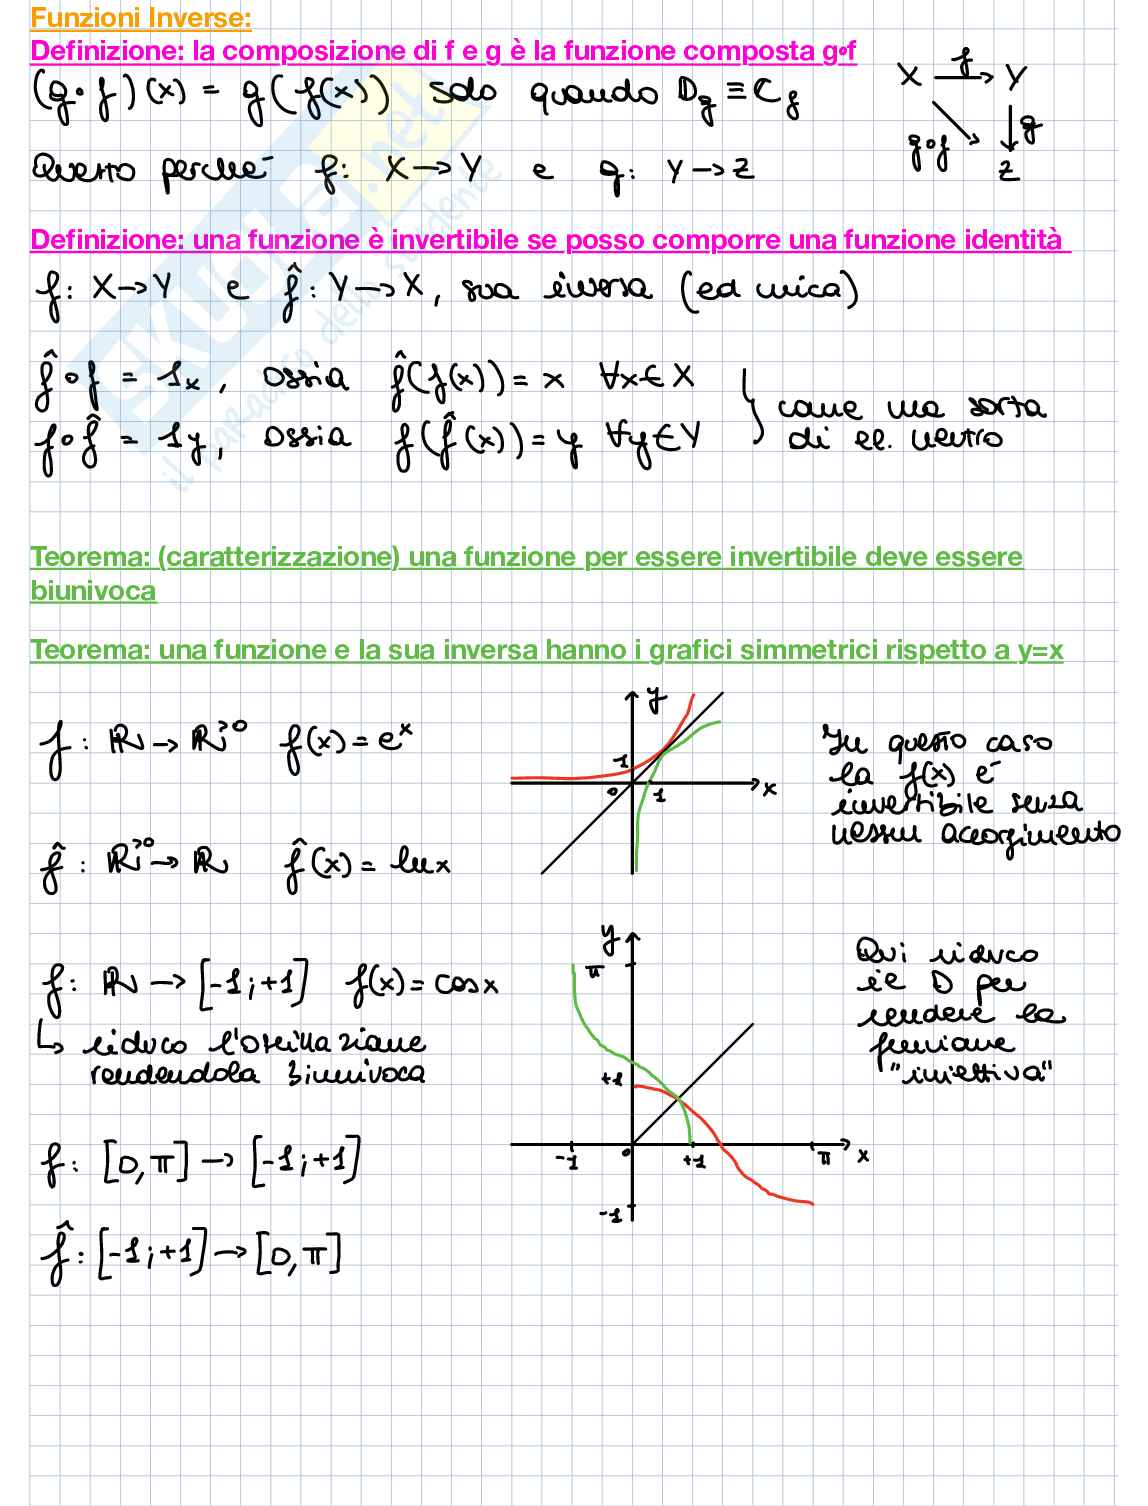 Funzioni Inverse:
Definizione: la composizione di f e g è la funzione composta g∘f
(g∘f)(x) = g(f(x)) solo quando Dg ≡ Cf
X f Y
g∘f g
Z
Questo perché f: X→Y e g: Y→Z
Definizione: una funzione è invertibile se posso comporre una funzione identità
f: X→Y e f̂: Y→X, sua inversa (ed unica)
f̂∘f = 1x, ossia f̂(f(x)) = x ∀x∈X
f∘f̂ = 1y, ossia f(f̂(x)) = y ∀y∈Y
come una sorta
di el. neutro
Teorema: (caratterizzazione) una funzione per essere invertibile deve essere
biunivoca
Teorema: una funzione e la sua inversa hanno i grafici simmetrici rispetto a y=x
f: ℝ→ℝ^>0 f(x) = e^x
f̂: ℝ^>0→ℝ f̂(x) = ln x
y
1
0 1 x
In questo caso
la f(x) è
invertibile senza
nessun accorgimento
f: ℝ→[-1;+1] f(x) = cos x
↳ riduco l'oscillazione
rendendola biunivoca
f: [0,π]→[-1;+1]
f̂: [-1;+1]→[0,π]
y
π
+1
-1 0 +1 π x
-1
Qui riduco
il D per
rendere la
funzione
"iniettiva"
SKUOLA.net
il paradiso dello studente